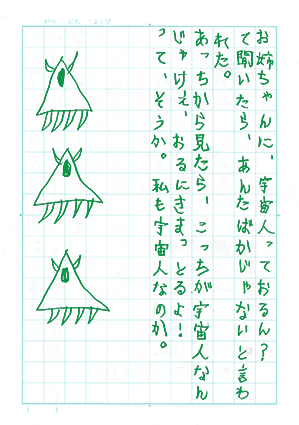 お姉ちゃんに、宇宙人っておるん?
て聞いたら、あんたばかじゃないと言わ
れた。
あっちから見たら、こっちが宇宙人なん
じゃけえ、おるにきまっとるよ!
って、そうか。私も宇宙人なのか。